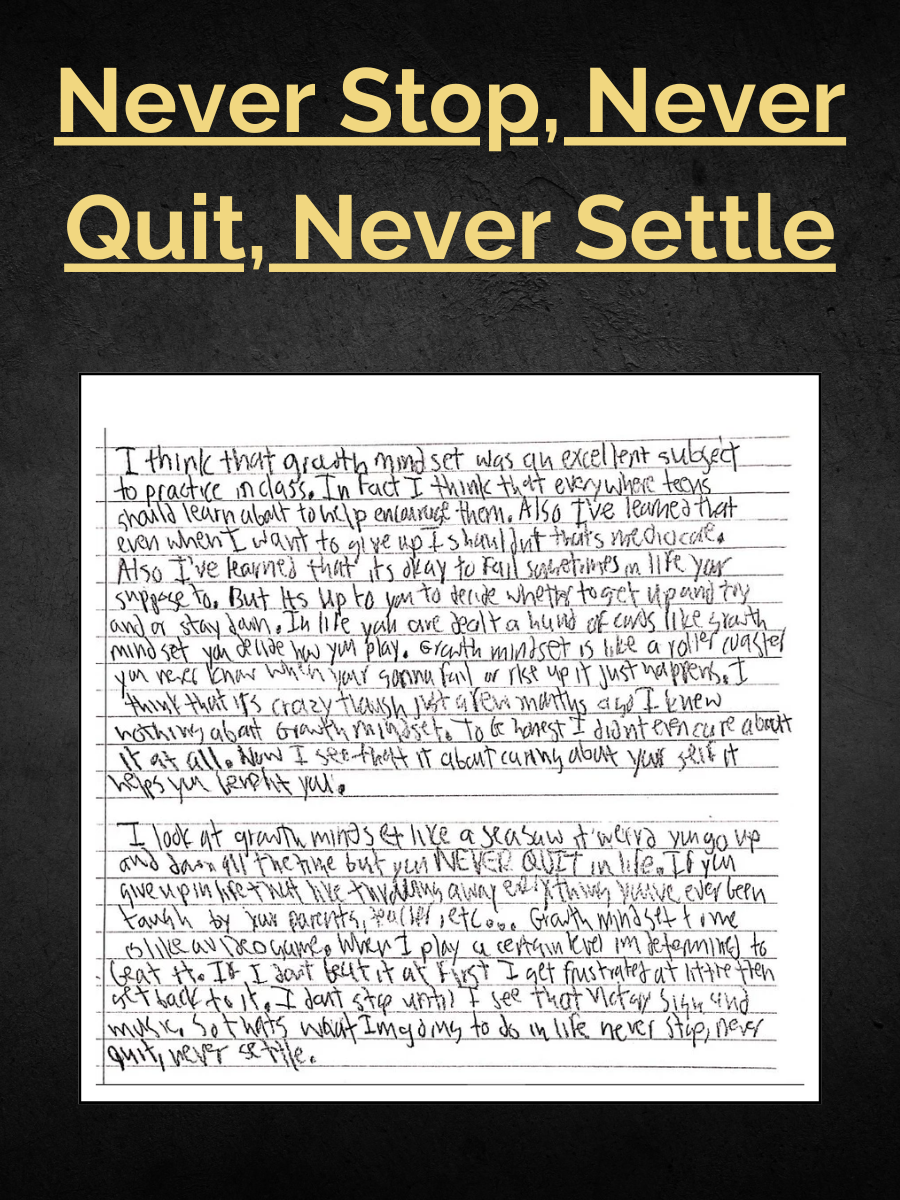 Never Stop, Never
Quit, Never Settle
I think that growth mindset was an excellent subject
to practice in class. In Fact I think that everywhere teens
should learn about to help encourage them. Also I've learned that
even when I want to give up I shouldnt thats mediocore.
Also I've learned that its okay to Fail sometimes in life your
suppose to. But Its Up to you to decide whether to get up and try
and or stay down. In life you are dealt a hand of cards like growth
mindset you decide how you play. Growth mindset is like a roller coaster
you never know when your gonna fail or rise up it just happens. I
think that it's crazy though just a few months ago I knew
nothing about Growth mindset. To be honest I didnt even care about
it at all. Now I see that it about caring about your self it
helps you benefit you.
I look at growth mindset like a seasaw it weird you go up
and down all the time but you NEVER QUIT in life. If you
give up in life that like throwing away everything you've ever been
taugh by your parents, teacher, etc... Growth mindset to me
is like a video game. When I play a certain level im determined to
beat it. If I dont beat it at First I get frustrated at little then
get back to it. I dont stop until I see that Victory Sign and
music. So thats what Im going to do in life never stop, never
quit, never settle.